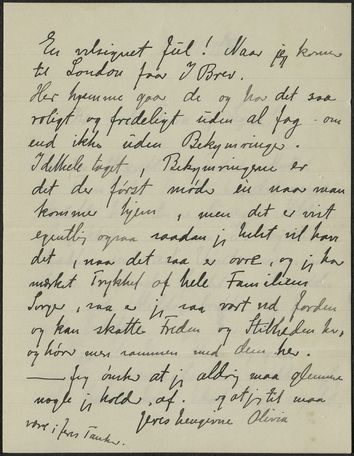 En velsignet Jul! Naar jeg kommer
til London faar I Brev.
Her hjemme gaar de og har det saa
roligt og fredeligt uden al fag - om
end ikke uden Bekymringer.
I det hele taget, Bekymringerne er
det der først møde en naar man
kommer hjem, men det er vist
egentlig ogsaa saadan jeg helst vil have
det, naa det saa er ovre, og jeg har
mærket Trykket af hele Familiens
Sorger, saa er jeg saa vort ved Jorden
og kan skatte Freden og Stilheden her,
og høre mer sammen med dem her.
— Jeg ønsker at jeg aldrig maa glemme
nogle jeg holdt af. og at jeg til maa
være i Jeres Tanker. Jeres hengivne Olivia